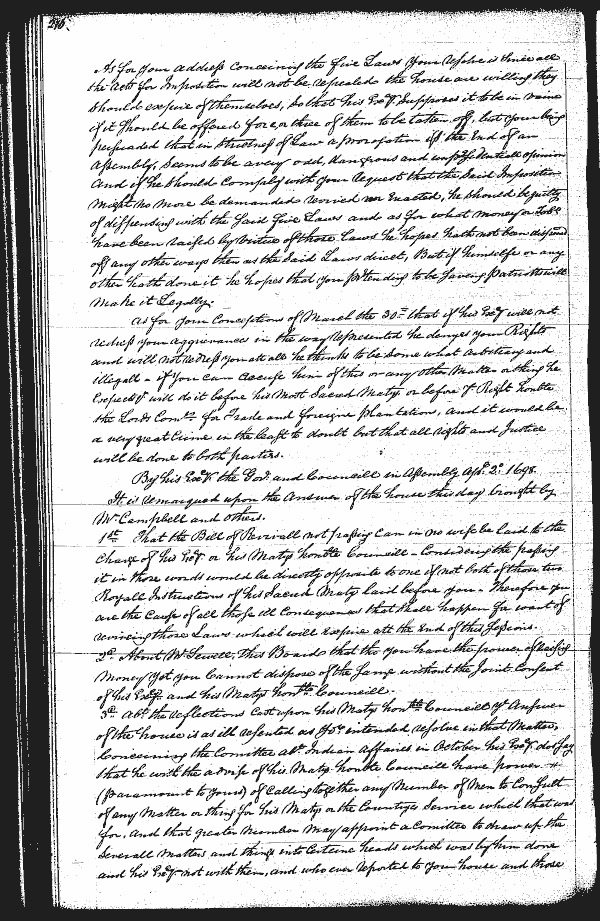 246.
As for your address concerning the five Laws your resolve is since all
the Acts for Imposition will not be repealed the house are willing they
should expire of themselves, so that his Excy Supposes it to be in vaine
if it should be offered for or three of them to be taken off, but your being
perswaded that in strictness of Law a prorogation is the End of an
Assembly, seems to be a very odd, dangerous and opinion
And if he should comply with your request that the said Imposition
might no more be demanded Levied nor Exacted, he should be guilty
of dispensing with the said five Laws and as for what money or Tobo
have been raised by Virtue of those Laws he hopes hath not been disposed
off any other ways then as the said Laws direct, But if himselfe or any
other hath done it he hopes that you pretending to be Saveing Patriots will
make it Legally.
As for your Conceptions of March the 30th that if his Excy will not
redress your aggrievances in the way represented he denyes your Rights
and will not redress you att all he thinks to be some what arbitrary and
illegall - if you can accuse him of this or any other Matter or thing he
Expects y will do it before his Most Sacred Maty or before ye Right honble
the Lords Comrs for Trade and foreigne plantation, and it would be
a very great Crime in the least to doubt but that all right and Justice
will be done to both parties.
By his Excy the Govr and Councill in Assembly Apr. 2d 1698.
It is remarqued upon the Answer of the house this day brought by
Mr Campbell and others.
1st That the Bill of Revivall not passing Can in no wise be laid to the
charge of his Excy or his Matys honble Councill - Considering the passing
it in those words would be directly opposite to one if not both of those two
Royall Instructions of his Sacred Maty laid before you - Therefore you
are the Cause of all those ill Consequences that shall happen for want of
reviveing those Laws which will expire att the End of this Sessions.
2d About Mr Sewell, This Board that tho you have the power of raiseing
Money yet you Cannot dispose of the same without the Joint Consent
of his Excy and his Matys honble Councill.
3d Abt the reflections cast upon his Matys honble Councill ye Answer
of the house is as ill resented as intended resolve in that Matter,
Concerning the Comittee abt Indian Affairs in October his Excy do say
that he with the advise of his Matys honble Councill have power
(paramount to yours) of Calling together any Number of Men to Consult
of any Matter or thing for his Maty or the Countrys Service which that was
for, And that greater Number may appoint a Comittee to draw up the
severall matters and things into Certeine heads which was by him done
and his Excy not with them, and who ever reported to your house and those